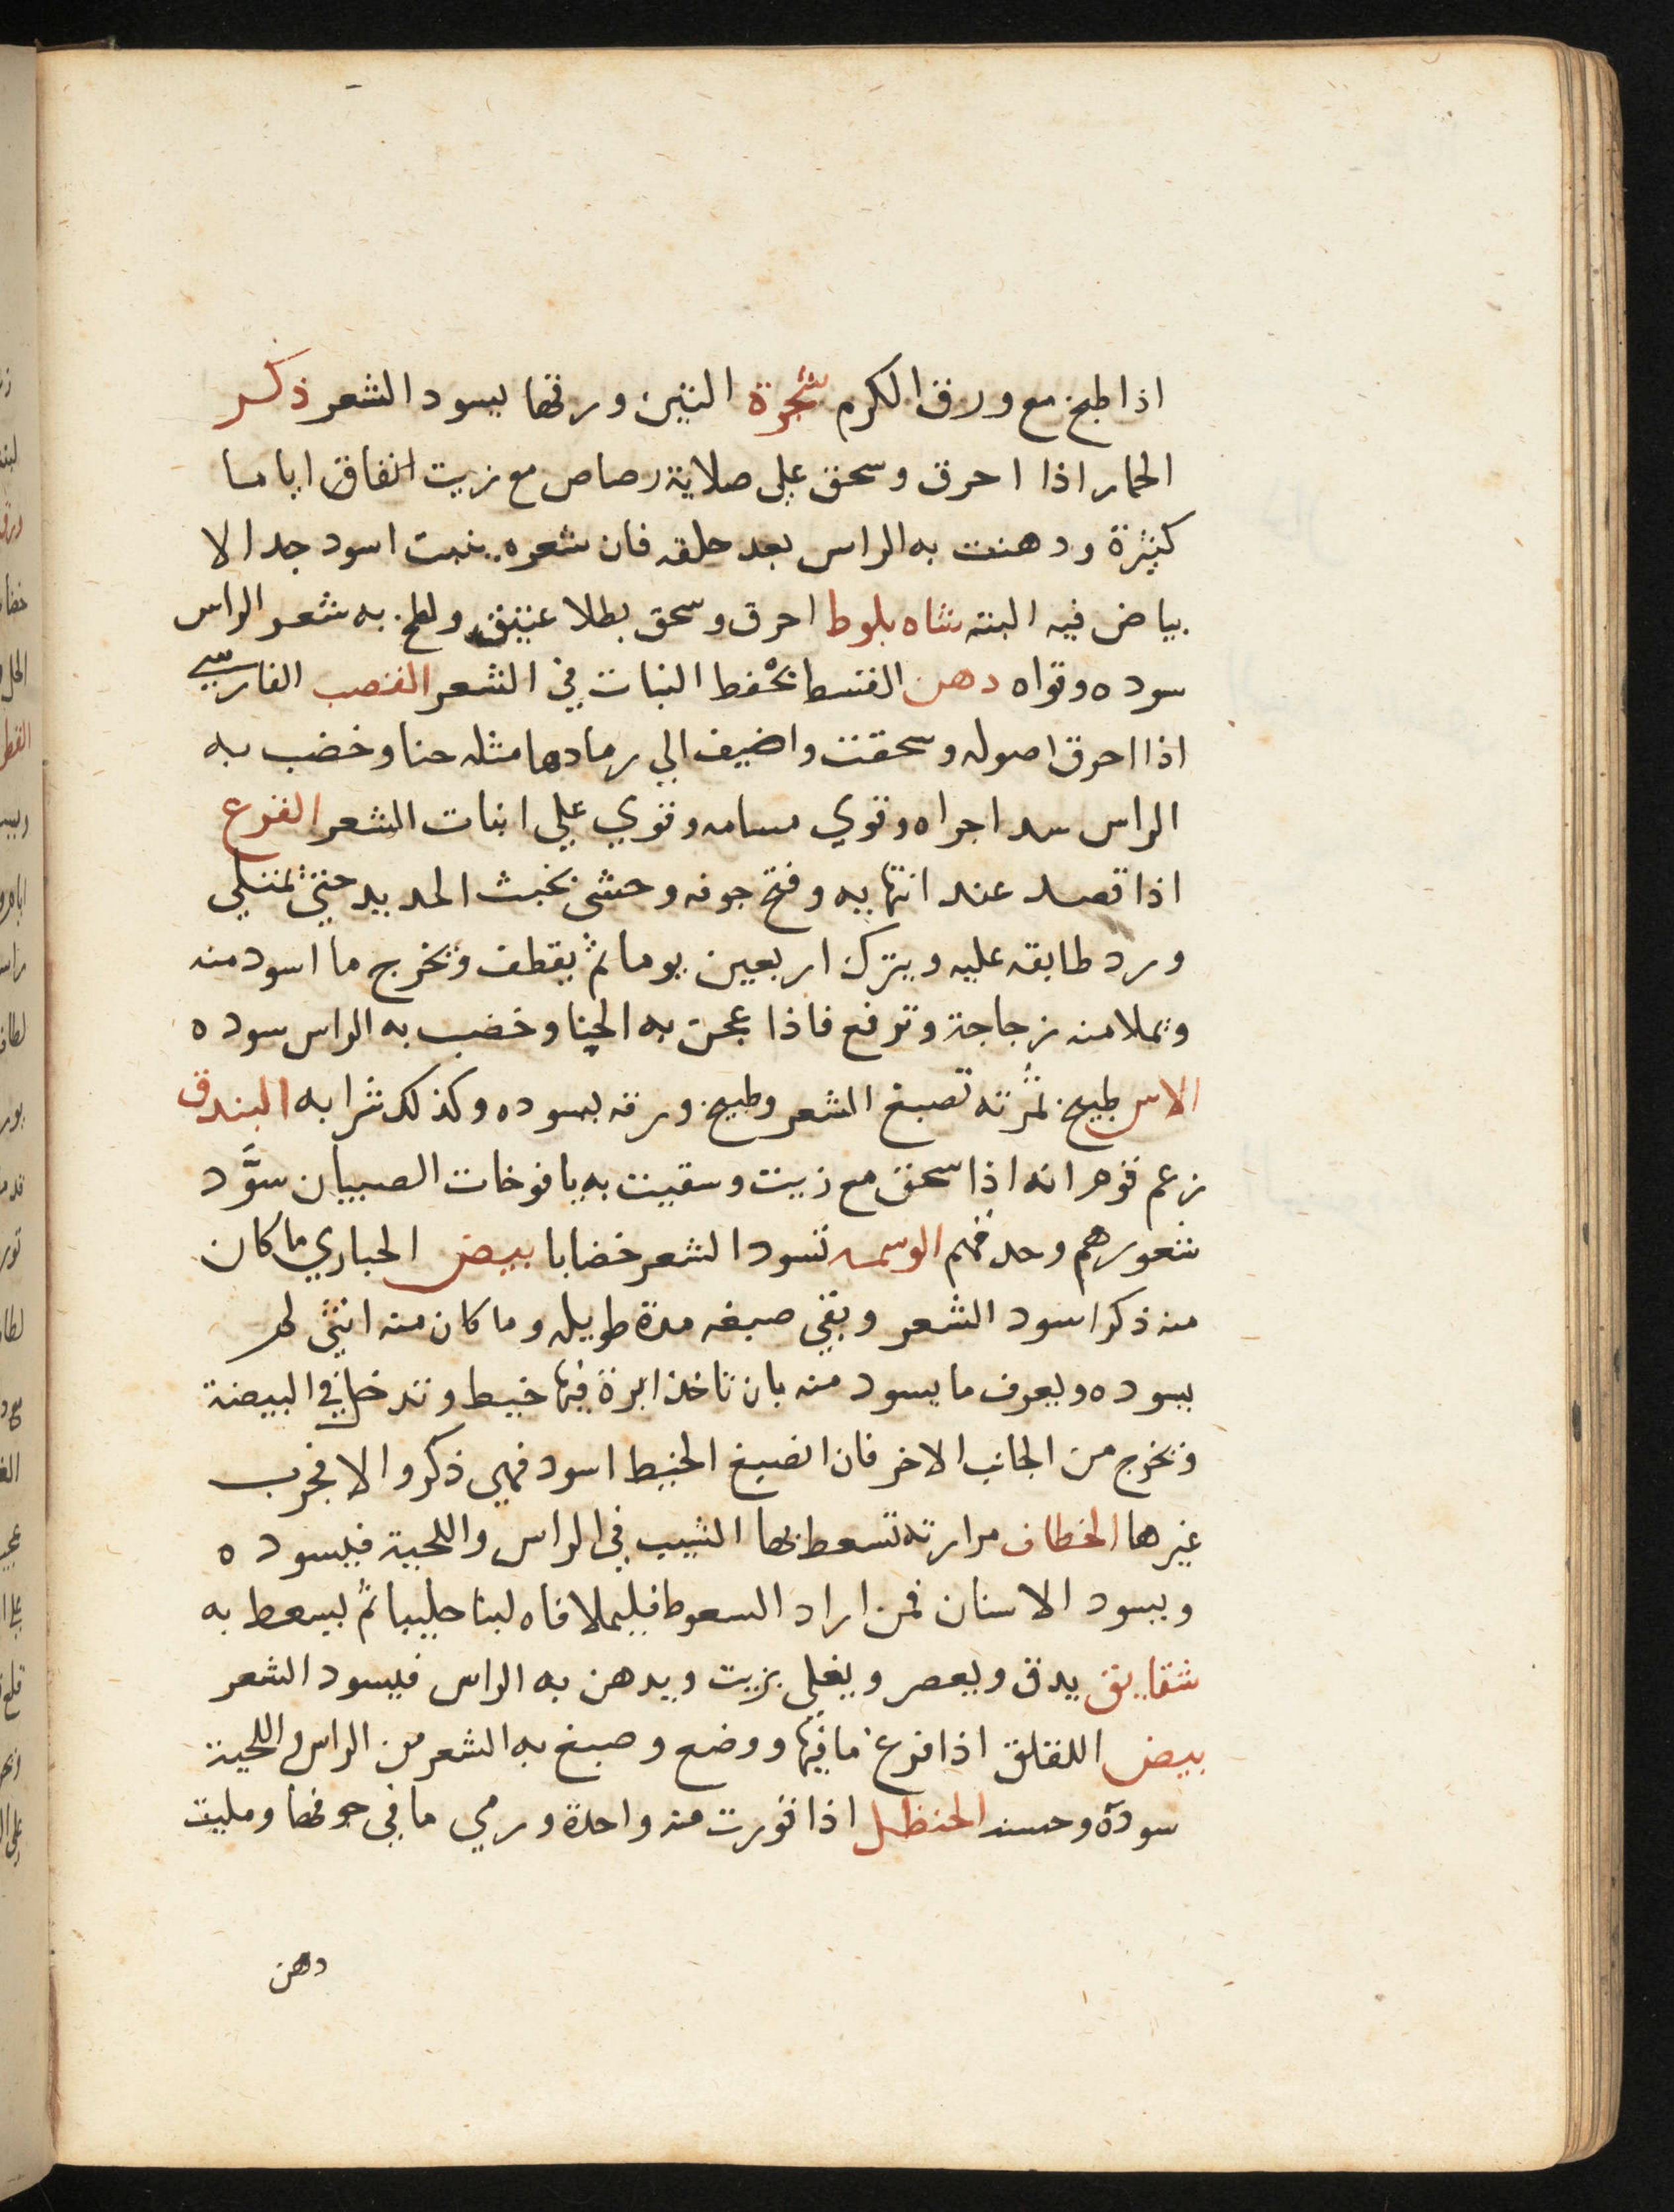 اذا طبخ مع ورق الكرم شجرة التين ورقها يسود الشعر ذكر
الحمار اذا احرق وسحق على صلاية رصاص مع زيت انفاق اياما
كثيرة ودهنت به الراس بعد حلقه فان شعره ينبت اسود جدا لا
بياض فيه البته شاه بلوط احرق وسحق بطلا عتيق ولطخ به شعر الراس
سوده وقواه دهن القسط يحفظ النبات في الشعر القصب الفارسي
اذا احرق اصوله وسحقت واضيف الي رمادها مثله حنا وخضب به
الراس سد اجراه وقوي مسامه وقوي علي انبات الشعر القرع
اذا قصد عند انتهايه وفتح جوفه وحشى بخبث الحديد حتى يمتلي
ورد طابقه عليه ويترك اربعين يوما ثم يقطف ويخرج ما اسود منه
ويملا منه زجاجة وترفع فاذا عجن به الحنا وخضب به الراس سوده
الاس طبيخ ثمرته تصبغ الشعر وطبيخ ورقه يسوده وكذلك شرابه البندق
زعم قوم انه اذا سحق مع زيت وسقيت به يافوخات الصبيان سوَّد
شعورهم وحدقهم الوسمه تسود الشعر خضابا بيض الحباري ما كان
منه ذكرا سود الشعر وبقي صبغه مدة طويله وما كان منه انثى لم
يسوده ويعرف ما يسود منه بان تاخذ ابرة فيها خيط وتدخل في البيضة
وتخرج من الجانب الاخر فان انصبغ الخيط اسود فهي ذكر والا فجرب
غيرها الخطاف مرارته تسعط بها الشيب في الراس واللحية فيسوده
ويسود الاسنان فمن اراد السعوط فليملا فاه لبنا حليبا ثم يسعط به
شقايق يدق ويعصر ويغلي بزيت ويدهن به الراس فيسود الشعر
بيض اللقلق اذا فرغ ما فيها ووضع وصبغ به الشعر من الراس واللحية
سوده وحسنه الحنظل اذا قورت منه واحدة ورمي ما في جوفها ومليت
دهن